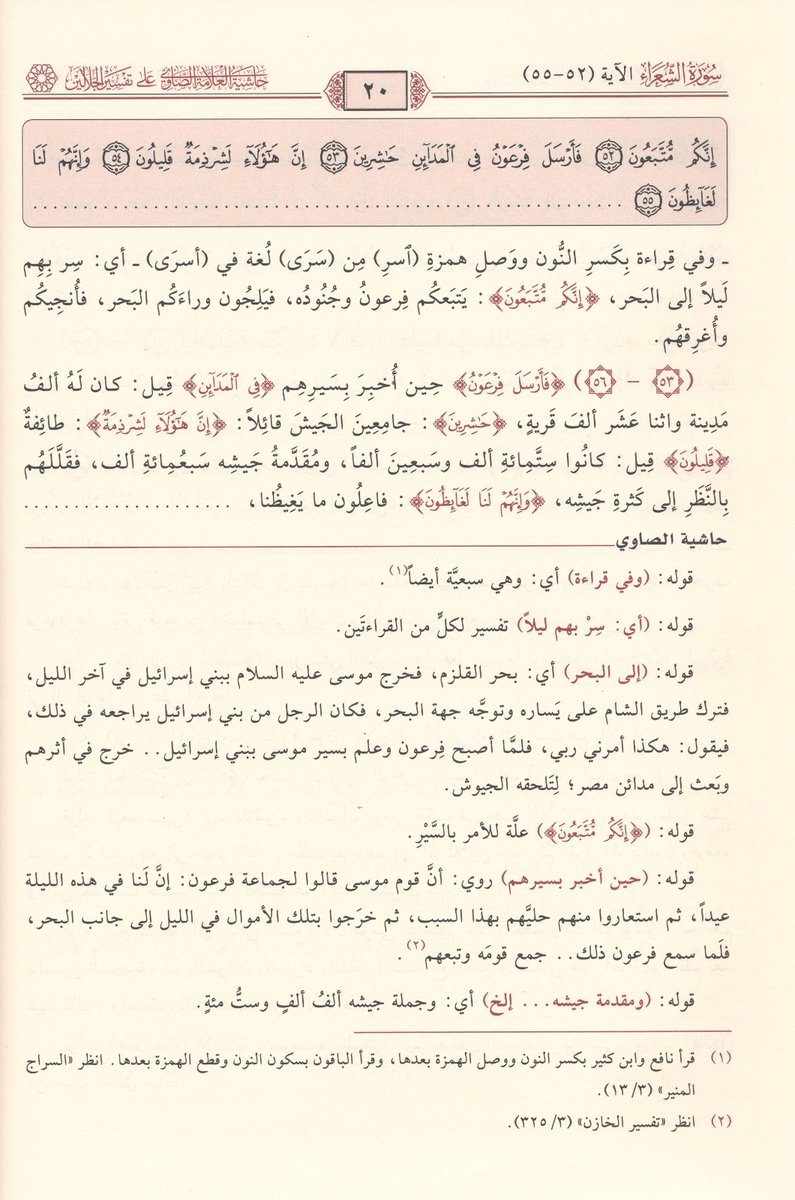 سُورَةُ الشُّعَرَاءِ الآية (٥٢-٥٥)
٢٠
حاشية العلامة الصاوي على تفسير الجلالين
إِنَّكُم مُّتَّبَعُونَ ۝٥٢ فَأَرْسَلَ فِرْعَوْنُ فِي ٱلْمَدَآئِنِ حَٰشِرِينَ ۝٥٣ إِنَّ هَٰٓؤُلَآءِ لَشِرْذِمَةٌ قَلِيلُونَ ۝٥٤ وَإِنَّهُمْ لَنَا
لَغَآئِظُونَ ۝٥٥ ........................................
ـ وفي قِراءة بِكَسرِ النُّون ووَصلِ همزةِ (ٱسرِ) مِن (سَرَى) لُغة في (أسرَى) ـ أي: سِر بِهِم
لَيلاً إلى البَحر، ﴿إِنَّكُم مُّتَّبَعُونَ﴾: يَتبَعكُم فِرعونُ وجُنُودُه، فيَلِجُون وراءَكُم البَحر، فأُنجِيكُم
وأُغرِقهُم.
(٥٣ - ٥٦) ﴿فَأَرْسَلَ فِرْعَوْنُ﴾ حِين أُخبِرَ بِسَيرِهِم ﴿فِي ٱلْمَدَآئِنِ﴾ قِيل: كان لَهُ ألفُ
مَدِينة واثنا عَشَر ألفَ قَريةٍ، ﴿حَٰشِرِينَ﴾: جامِعِينَ الجَيشَ قائلاً: ﴿إِنَّ هَٰٓؤُلَآءِ لَشِرْذِمَةٌ﴾: طائِفةٌ
﴿قَلِيلُونَ﴾ قِيل: كانُوا سِتَّمِائةِ ألف وسَبعِينَ ألفاً، ومُقَدَّمةُ جَيشِه سَبعُمِائةِ ألف، فقَلَّلَهُم
بِالنَّظَرِ إلى كَثرةِ جَيشِه، ﴿وَإِنَّهُمْ لَنَا لَغَآئِظُونَ﴾: فاعِلُون ما يَغِيظُنا، .....................
حاشية الصاوي
قوله: (وفي قراءة) أي: وهي سبعيَّة أيضاً(١).
قوله: (أي: سِرْ بهم ليلاً) تفسير لكلٍّ من القراءتَين.
قوله: (إلى البحر) أي: بحر القلزم، فخرج موسى عليه السلام ببني إسرائيل في آخر الليل،
فترك طريق الشام على يَساره وتوجَّه جهة البحر، فكان الرجل من بني إسرائيل يراجعه في ذلك،
فيقول: هكذا أمرني ربي، فلمَّا أصبح فِرعون وعلم بسير موسى ببني إسرائيل.. خرج في أثرهم
وبَعث إلى مدائن مصر؛ لِتَلحقه الجيوش.
قوله: (﴿إِنَّكُم مُّتَّبَعُونَ﴾) علَّة للأمر بالسَّيْرِ.
قوله: (حين أخبر بسيرهم) روي: أنَّ قوم موسى قالوا لجماعة فرعون: إنَّ لَنا في هذه الليلة
عيداً، ثم استعاروا منهم حليَّهم بهذا السبب، ثم خرَجوا بتلك الأموال في الليل إلى جانب البحر،
فلَما سمع فرعون ذلك.. جمع قومَه وتبعهم(٢).
قوله: (ومقدمة جيشه... إلخ) أي: وجملة جيشه ألفُ ألفٍ وستُّ مئةٍ.
(١) قرأ نافع وابن كثير بكسر النون ووصل الهمزة بعدها، وقرأ الباقون بسكون النون وقطع الهمزة بعدها. انظر «السراج
المنير» (٣/ ١٣).
(٢) انظر «تفسير الخازن» (٣/ ٣٢٥).